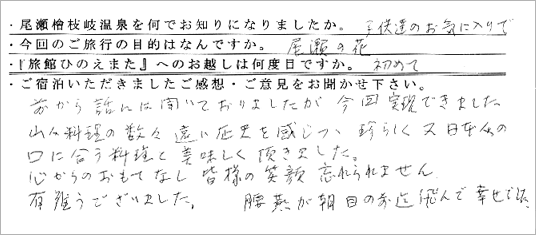 ・尾瀬檜枝岐温泉を何でお知りになりましたか。子供達のお気に入りで
・今回のご旅行の目的はなんですか。 尾瀬の花
・『旅館ひのえまた』へのお越しは何度目ですか。 初めて
・ご宿泊いただきましたご感想・ご意見をお聞かせ下さい。
前から話には聞いておりましたが 今回実現できました
山人料理の数々 遠い歴史を感じつつ、珍らしく 又日本人の
口に合う料理と美味しく頂きました。
心からのおもてなし 皆様の笑顔 忘れられません
有難うございました。 腰燕が朝目の前迄飛んで幸せでした